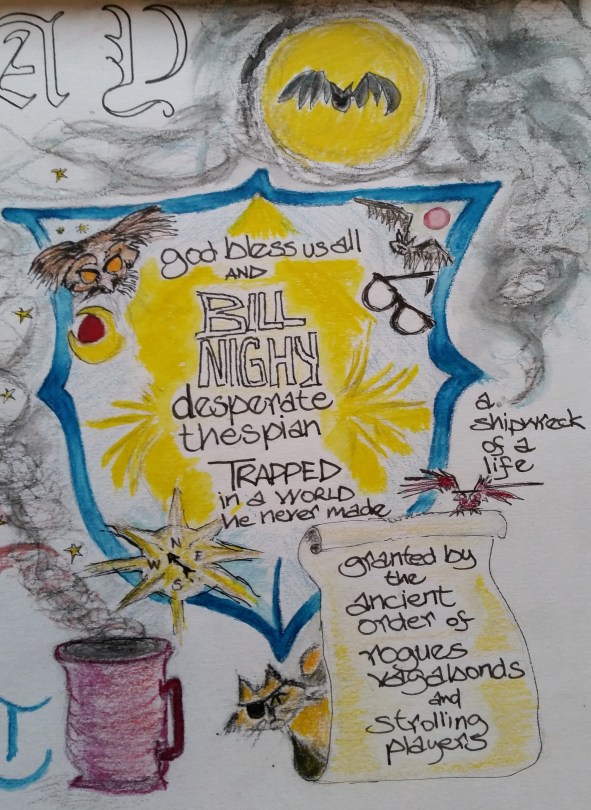 AY
god bless us all
AND
BILL
NIGHY
desperate
thespian
TRAPPED
in a WORLD
he never made
a
shipwreck
of a
life
N
W E
S
granted by
the
ancient
order of
rogues
vagabonds
and
strolling
players